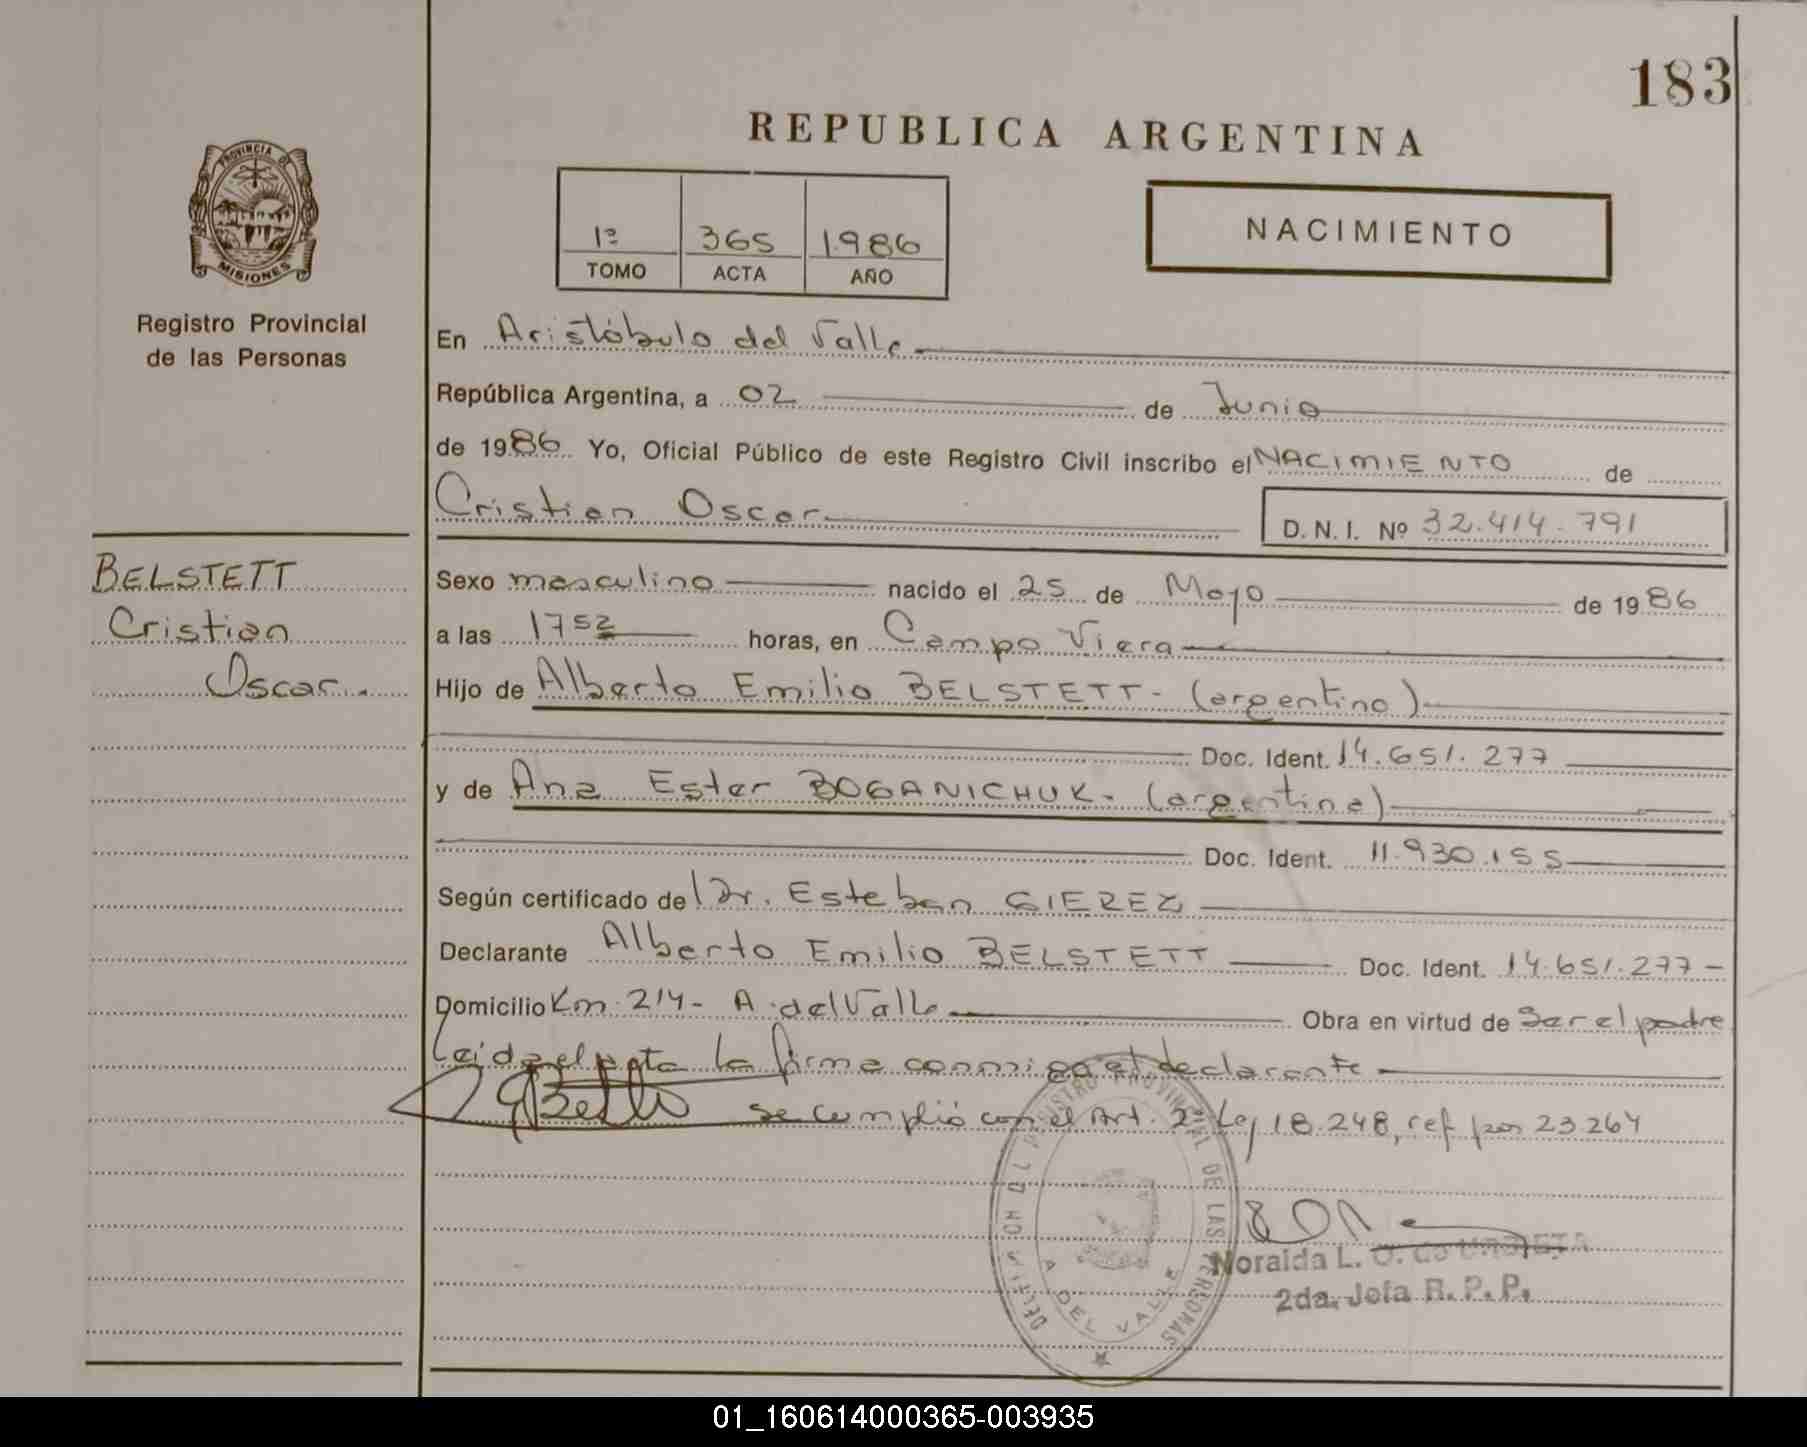 183
REPUBLICA ARGENTINA
PROVINCIA DE
MISIONES
Registro Provincial
de las Personas
1º 365 1986
TOMO ACTA AÑO
NACIMIENTO
En Aristóbulo del Valle
República Argentina, a 02 de Junio
de 1986 Yo, Oficial Público de este Registro Civil inscribo el NACIMIENTO de
Cristian Oscar D.N.I. Nº 32.414.791
BELSTETT
Cristian
Oscar.
Sexo masculino nacido el 25 de Mayo de 1986
a las 1752 horas, en Campo Viera
Hijo de Alberto Emilio BELSTETT- (argentino)
Doc. Ident. 14.651.277
y de Ana Ester BOGANICHUK- (argentina)
Doc. Ident. 11.930.155
Según certificado del Dr. Esteban GIEREZ
Declarante Alberto Emilio BELSTETT Doc. Ident. 14.651.277-
Domicilio Km. 214- A. del Valle Obra en virtud de Ser el padre
Leida el acta la firma conmigo el declarante
se cumplió con el Art. 2º Ley 18.248, ref por 23.264
REGISTRO PROVINCIAL DE LAS PERSONAS
A. DEL VALLE
Noralda L. O. de
2da. Jefa R. P. P.
01_160614000365-003935